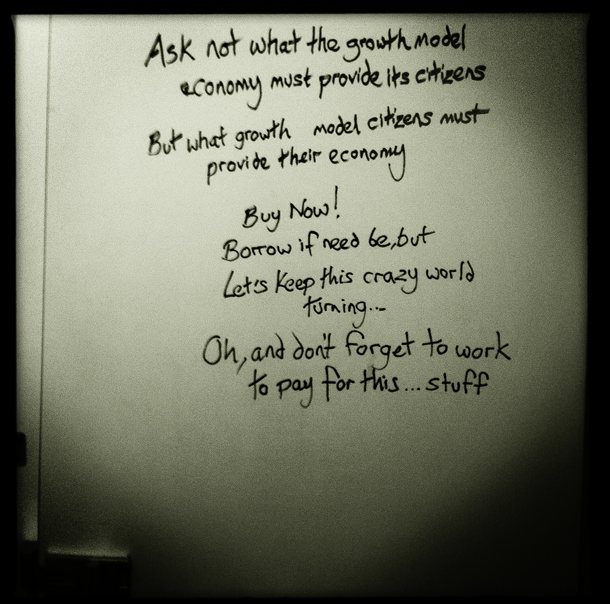 Ask not what the growth model
economy must provide its citizens
But what growth model citizens must
provide their economy
Buy Now!
Borrow if need be, but
Let's keep this crazy world
turning...
Oh, and don't forget to work
to pay for this... stuff